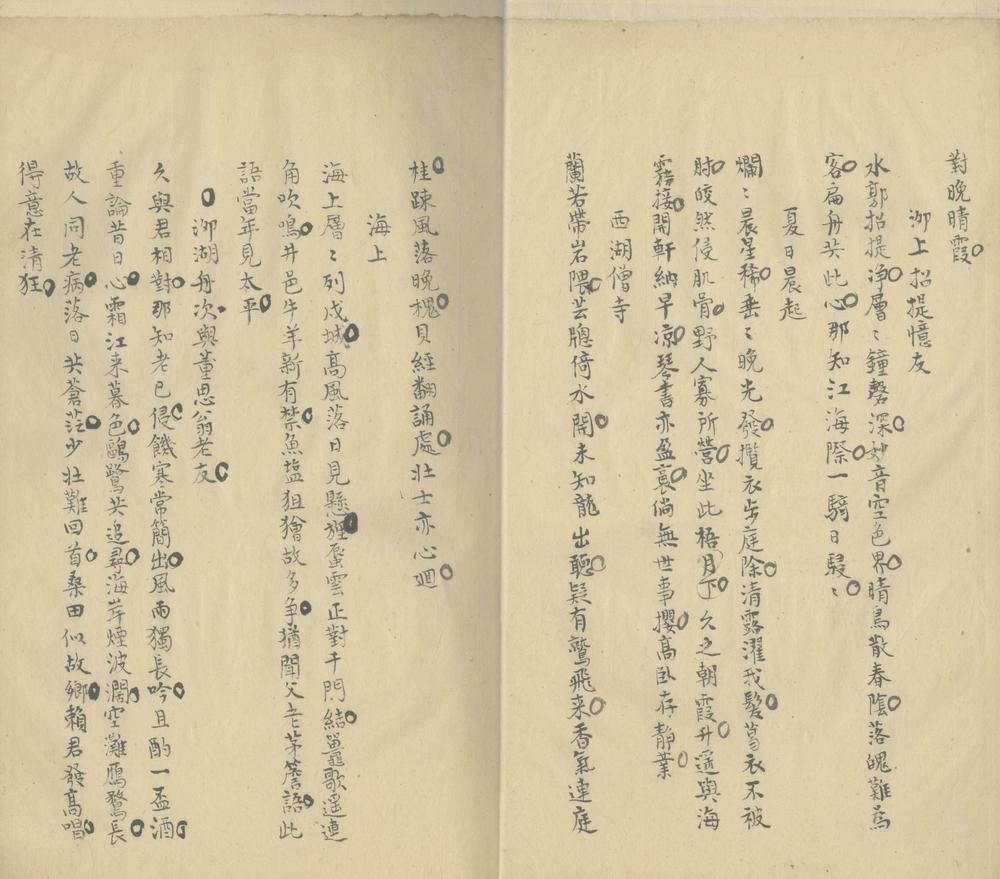 對晚晴霞
泖上招提憶友
水郭招提淨層〻鐘磬深妙音空色界晴鳥散春陰落魄難為
客扁舟共此心那知江海際一騎日駸〻
夏日晨起
爛〻晨星稀垂〻晚光發攬衣步庭除清露濯我髮葛衣不被
肘皎然侵肌骨野人寡所營坐此梧月下久之朝霞升遥與海
霧接開軒納早凉琴書亦盈裹倘無世事攖高卧存靜業
西湖僧寺
蘭若帶岩隈芸牕倚水開未知龍出聽疑有鷲飛来香氣連庭
桂踈風落晚槐貝經翻誦處壯士亦心迴
海上
海上層〻列戍城高風落日見懸旌蜃雲正對千門結鼉歌遥連
角吹鳴井邑牛羊新有禁魚塩狙獪故多争猶聞父老茅簷語此
語當年見太平
泖湖舟次與董思翁老友
久與君相對那知老已侵饑寒常簡出風雨獨長吟且酌一盃酒
重論昔日心霜江来暮色鷗鷺共追尋海岸煙波濶空灘鴈鶩長
故人同老病落日共蒼茫少壯難回首桑田似故鄉賴君發高唱
得意在清狂